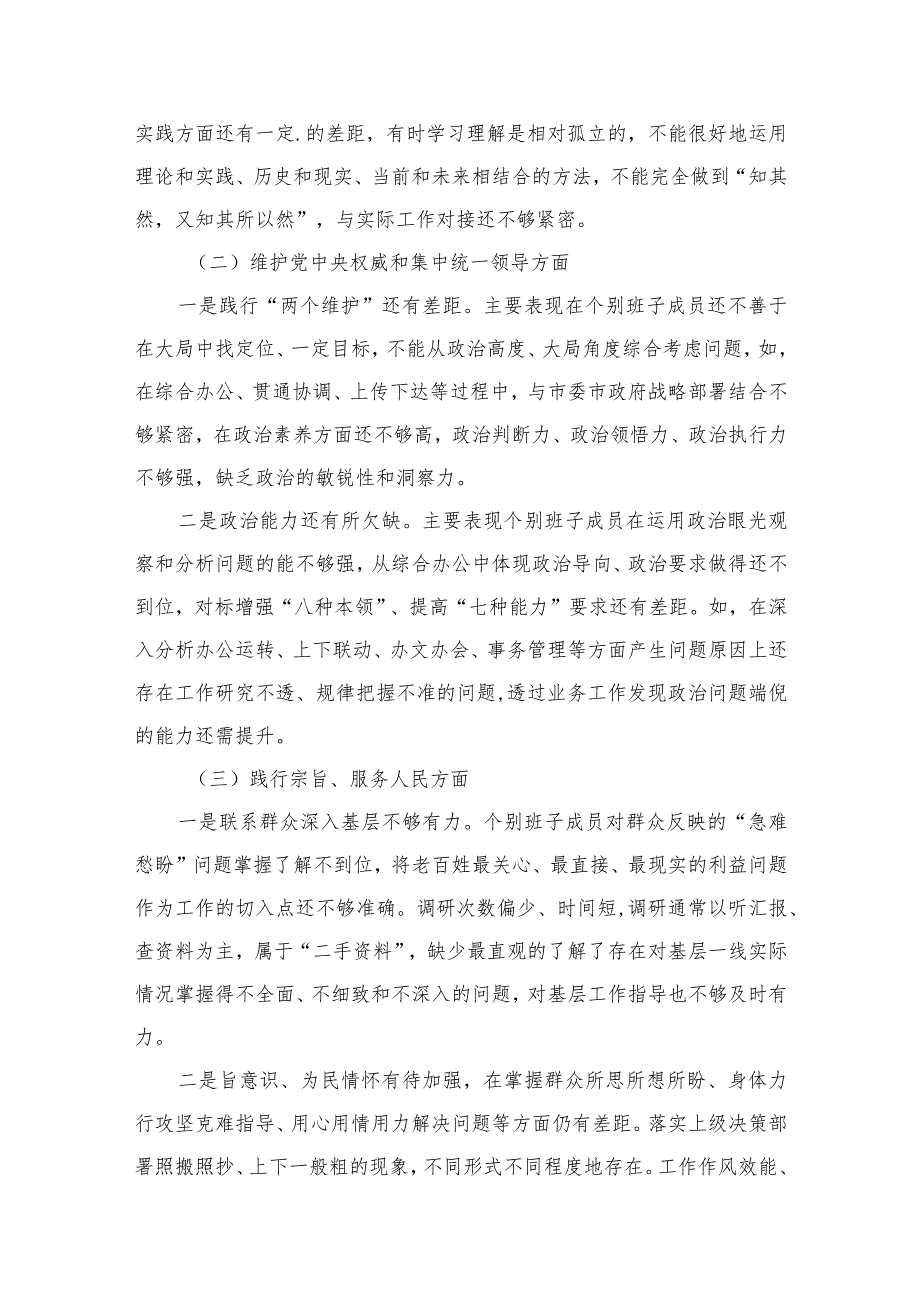 实践方面还有一定.的差距，有时学习理解是相对孤立的，不能很好地运用
理论和实践、历史和现实、当前和未来相结合的方法，不能完全做到“知其
然，又知其所以然”，与实际工作对接还不够紧密。
（二）维护党中央权威和集中统一领导方面
一是践行“两个维护”还有差距。主要表现在个别班子成员还不善于
在大局中找定位、一定目标，不能从政治高度、大局角度综合考虑问题，如，
在综合办公、贯通协调、上传下达等过程中，与市委市政府战略部署结合不
够紧密，在政治素养方面还不够高，政治判断力、政治领悟力、政治执行力
不够强，缺乏政治的敏锐性和洞察力。
二是政治能力还有所欠缺。主要表现个别班子成员在运用政治眼光观
察和分析问题的能不够强，从综合办公中体现政治导向、政治要求做得还不
到位，对标增强“八种本领”、提高“七种能力”要求还有差距。如，在深
入分析办公运转、上下联动、办文办会、事务管理等方面产生问题原因上还
存在工作研究不透、规律把握不准的问题,透过业务工作发现政治问题端倪
的能力还需提升。
（三）践行宗旨、服务人民方面
一是联系群众深入基层不够有力。个别班子成员对群众反映的“急难
愁盼”问题掌握了解不到位，将老百姓最关心、最直接、最现实的利益问题
作为工作的切入点还不够准确。调研次数偏少、时间短,调研通常以听汇报、
查资料为主，属于“二手资料”，缺少最直观的了解了存在对基层一线实际
情况掌握得不全面、不细致和不深入的问题，对基层工作指导也不够及时有
力。
二是旨意识、为民情怀有待加强，在掌握群众所思所想所盼、身体力
行攻坚克难指导、用心用情用力解决问题等方面仍有差距。落实上级决策部
署照搬照抄、上下一般粗的现象，不同形式不同程度地存在。工作作风效能、